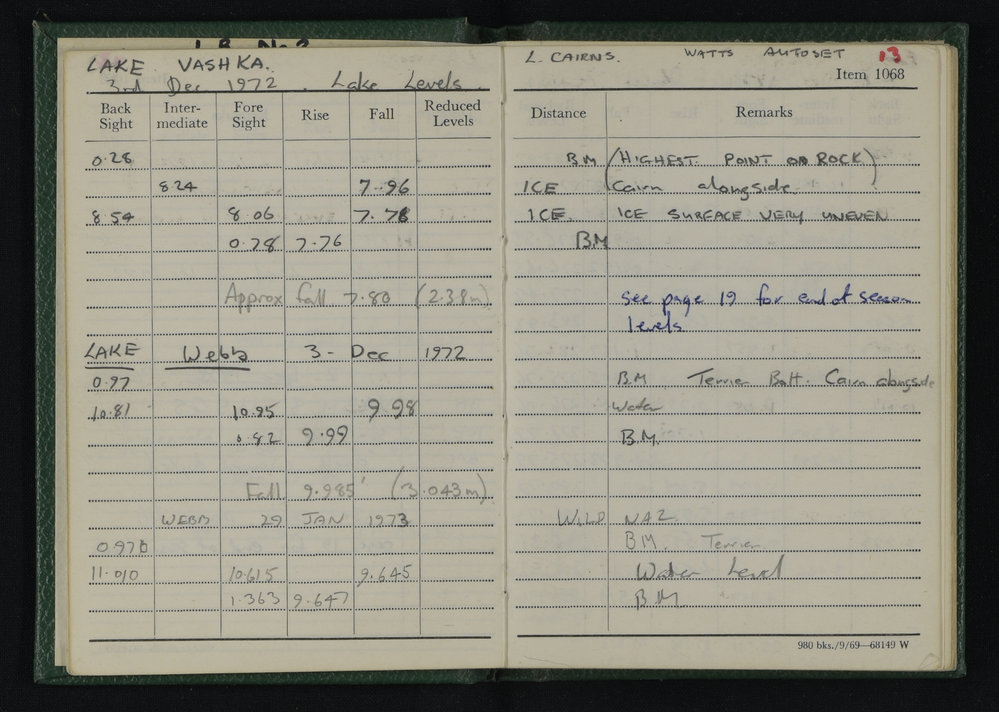 LAKE VASHKA.
3rd Dec 1972. Lake Levels.
Back Sight Inter-mediate Fore Sight Rise Fall Reduced Levels
0.28
8.24 7.96
8.54 8.06 7.78
0.78 7.76
Approx fall 7.80 (2.38m)
LAKE Webb 3 - Dec 1972
0.97
10.81 10.95 9.98
0.82 9.99
Fall 9.985' (3.043m)
WEBB 29 JAN 1973
0.970
11.010 10.615 9.645
1.363 9.647
L. CAIRNS. WATTS AUTOSET 13
Item 1068
Distance Remarks
BM (HIGHEST POINT ON ROCK)
ICE Cairn alongside
ICE. ICE SURFACE VERY UNEVEN
BM
see page 19 for end of season
levels
BM Terrier Bolt. Cairn alongside
Water
BM.
WILD NA2
BM. Terrier
Water Level
BM
980 bks./9/69—68149 W